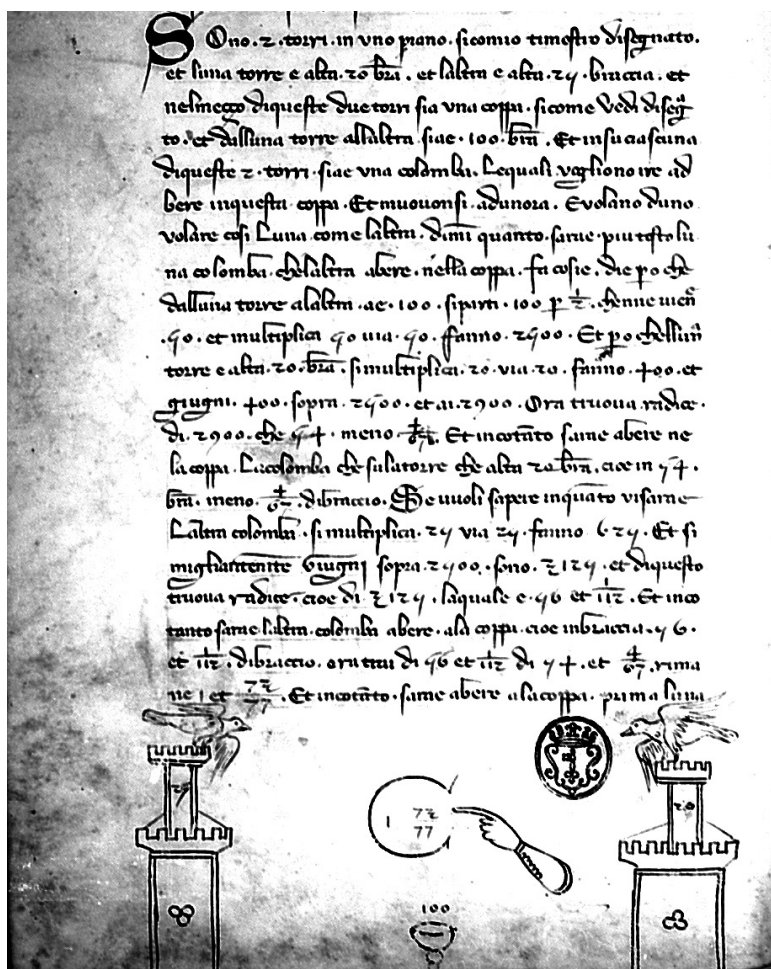 Sono . 2 . torri . in uno piano . sicomio timostro disegnato .
et luna torre e alta . 20 bra . et laltra e alta . 25 . braccia . et
nelmeçço diqueste due torri sia una coppa . sicome vedi diseg
to . et dalluna torre allaltra siae . 100 . bra . Et insuciascuna
diqueste 2 . torri . siae una colomba . Lequali vogliono ire ad
bere inquesta coppa . Et muovonsi . adunora . E volano duno
volare cosi Luna come laltra . dimi quanto . sarae . piu tosto lu
na colomba chelaltra abere . nella coppa . fa cosie . die po che
dalluna torre alaltra . ae . 100 . siparti . 100 p 1/2 . chenne vien
. 50 . et multiplica 50 via . 50 . fanno . 2500 . Et po chellun
torre e alta . 20 . bra . simultiplica . 20 . via . 20 . fanno . 400 . et
giugni . 400 . sopra . 2500 . et ai . 2900 . Ora truova radice .
di . 2900 . che 54 . meno . Et incotanto sarae abere ne
la coppa . La colomba che sulatorre che alta 20 bra . cioe in 54 .
bra . meno . 4/67 . dibraccio . Se vuoli sapere inquato visarae
Laltra colomba . si multiplica . 25 via 25 . fanno 625 . Et si
migliantemente giugni sopra . 2500 . sono . 3125 . et diquesto
truova radice . cioe di 3125 . laquale e . 56 et 1/112 . Et inco
tanto sarae laltra . colomba abere . ala coppa . cioe inbraccia . 56 .
et 1/112 . dibraccio . ora trai di 56 et 1/112 di 54 . et 4/67 . rima
ne 1 et 72/77 . Et incotanto . sarae abere alacoppa . prima luna
25
20
1 72/77
100